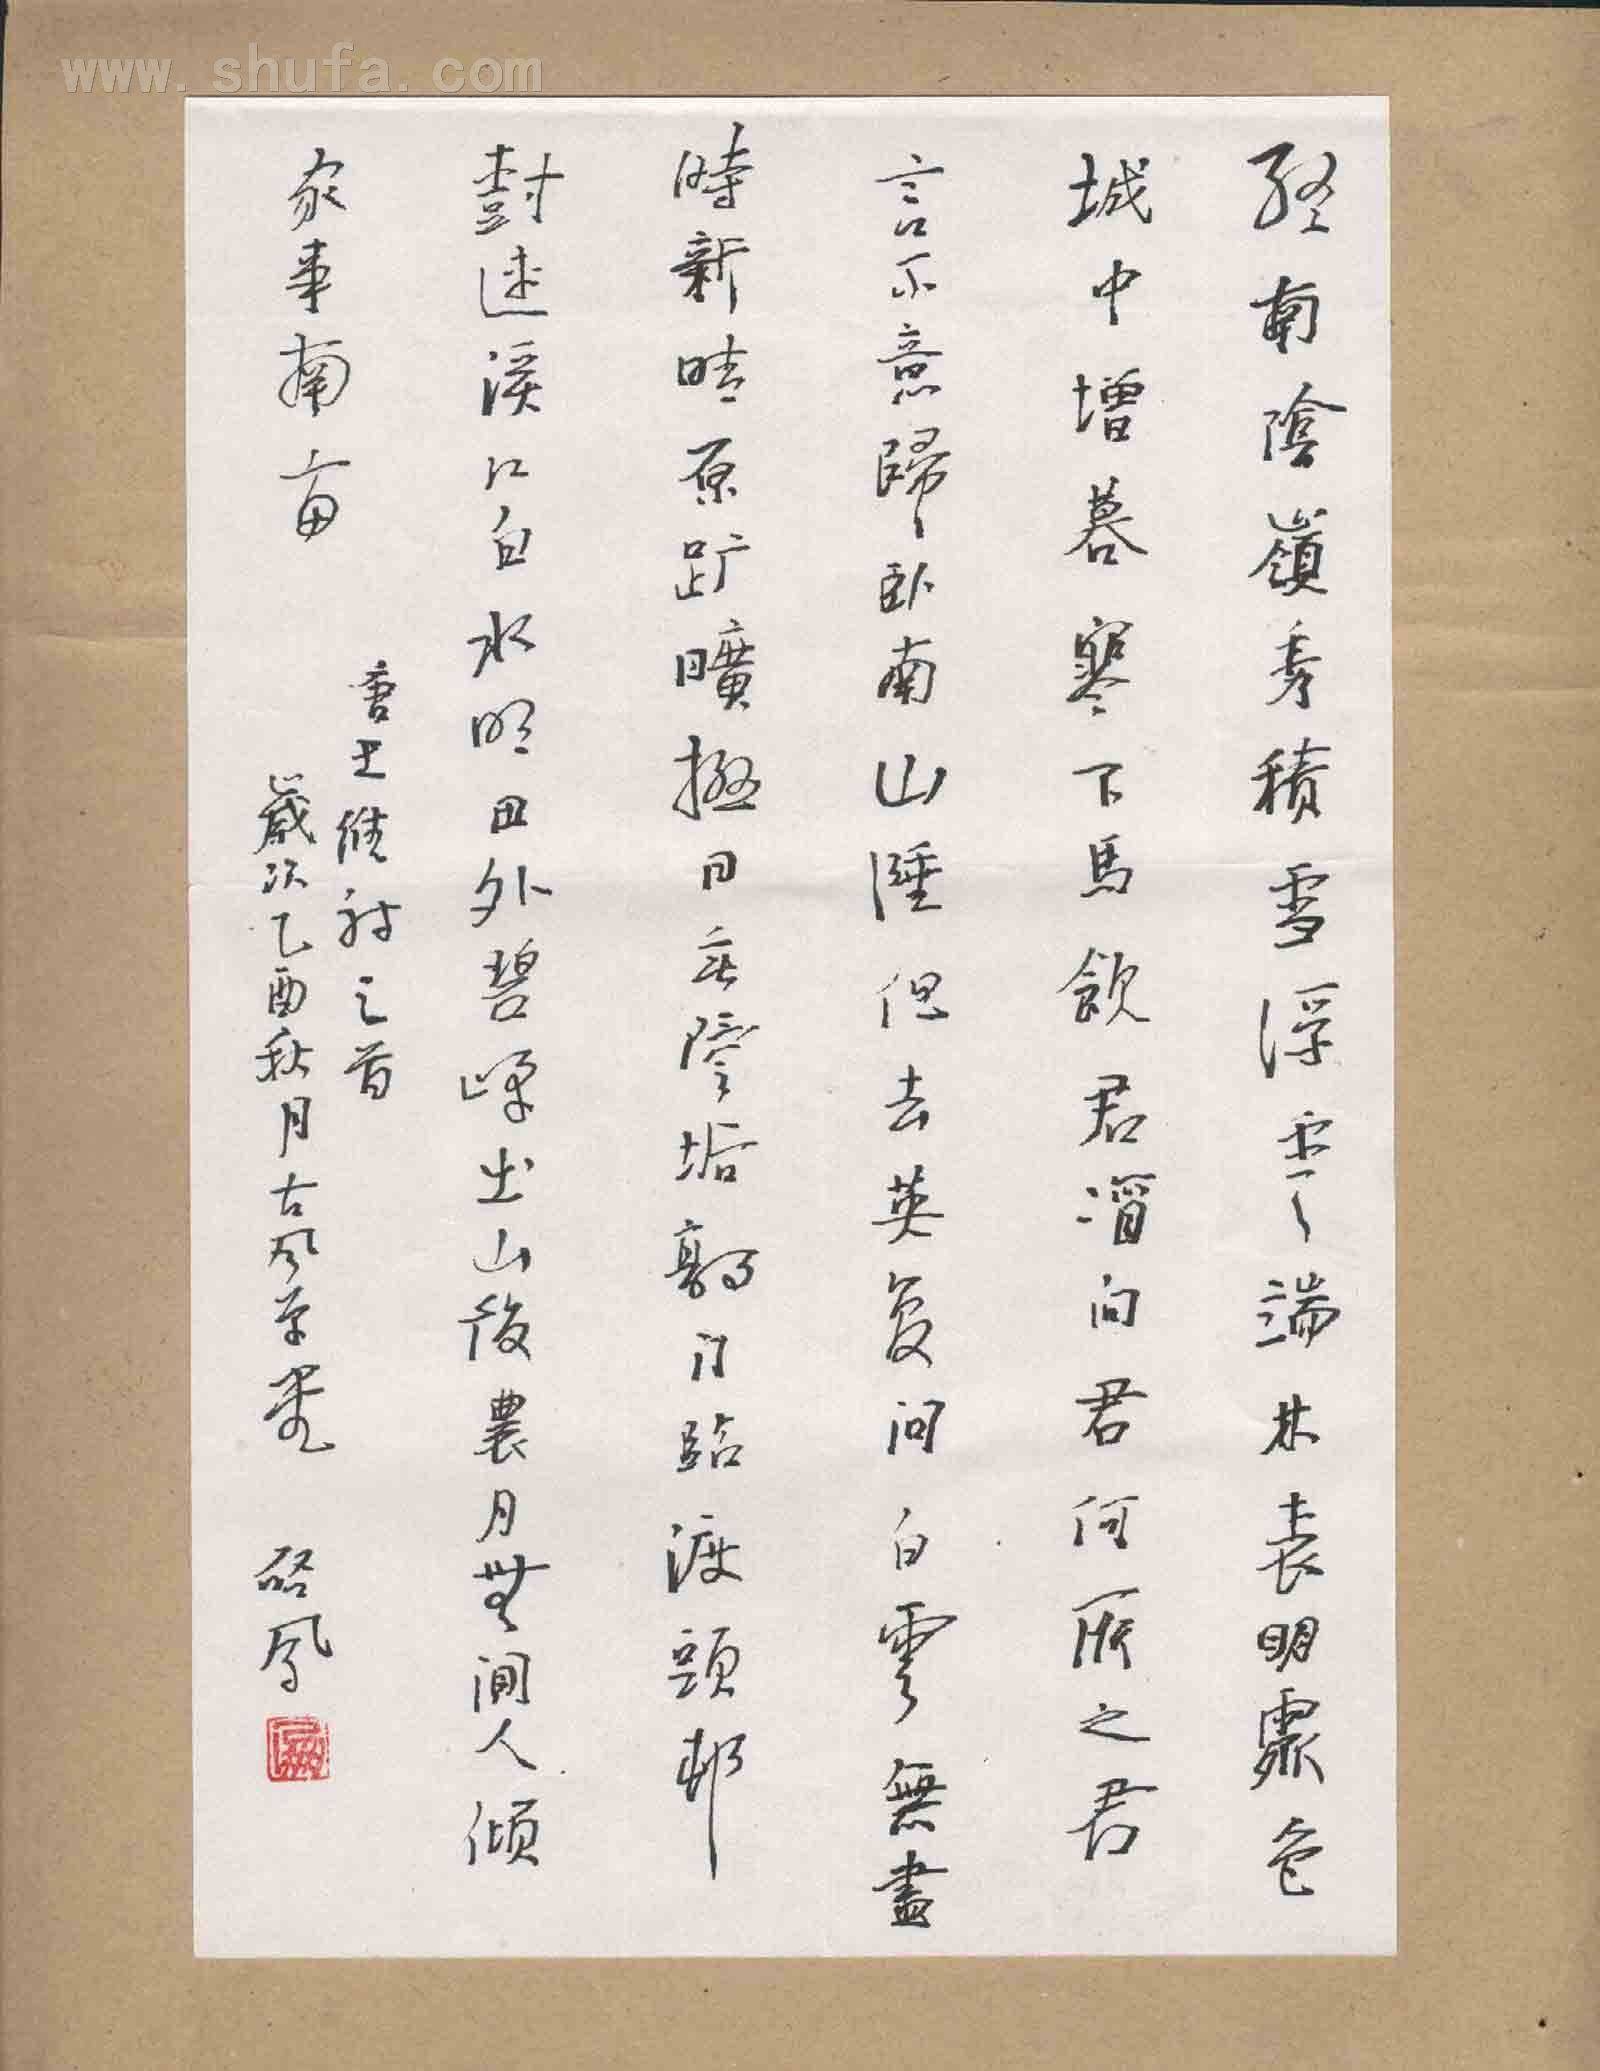 www.shufa.com
終南陰嶺秀積雪浮雲端林表明霽色
城中增暮寒下馬飲君酒問君何所之君
言不意歸臥南山陲但去莫復問白雲無盡
時新晴原野曠極目無氛垢郭門臨渡頭村
樹連溪口白水明田外碧峰出山後農月無閒人傾
家事南畝
唐王維詩三首
歲次乙酉秋月古風草堂